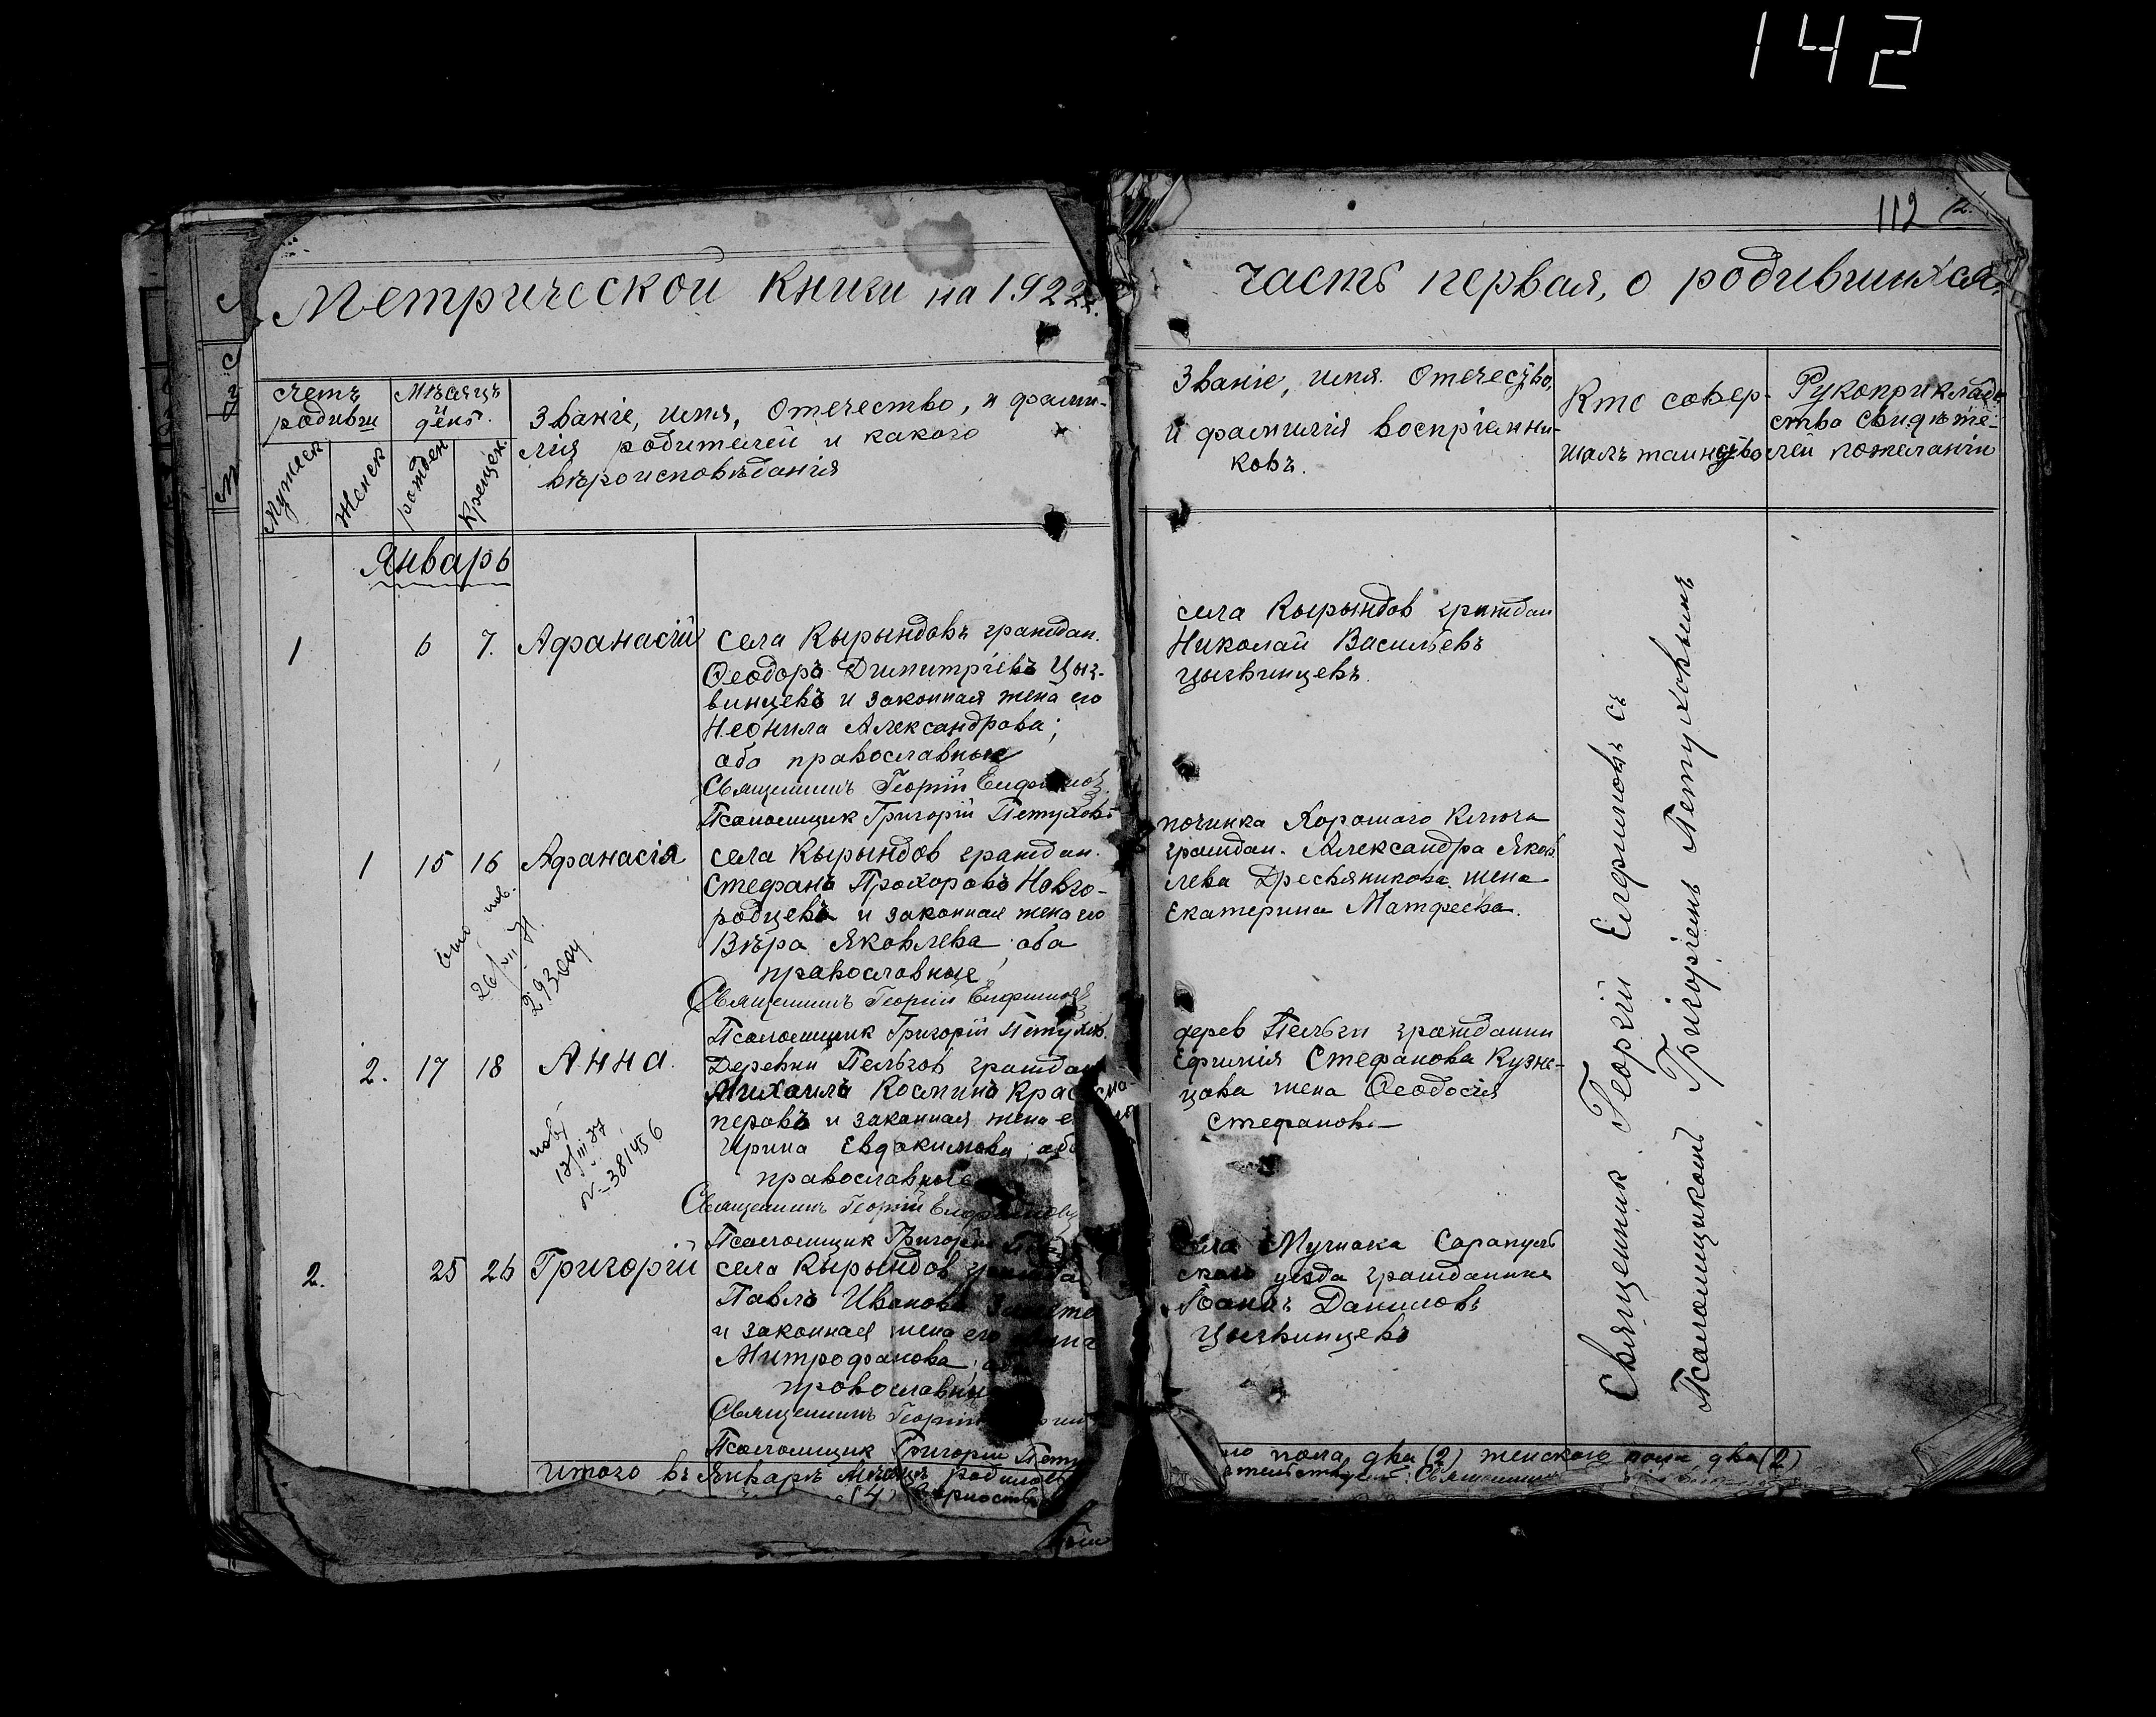 142
112
Метрической книги на 1922 г.
часть первая, о родившихся.
счетъ родивши
Мужеск
Женск
Мѣсяцъ и день.
рожден
крещен.
Званіе, имя, Отечество, и фами-
лія родителей и какого
вѣроисповѣданія
Званіе, имя. Отечество,
и фамилія воспріемни-
ковъ.
Кто совер-
шалъ таинство
Рукоприклад
ства свидѣте-
лей пожеланію
Январь
1 6 7. Афанасій
села Кырындовъ граждан.
Ѳеодоръ Димитріевъ Цыг-
винцевъ и законная жена его
Неонила Александрова;
оба православные
Священникъ Георгій Елфимов
Псаломщик Григорій Петуховъ
села Кырындов граждан
Николай Васильевъ
Цыгвинцевъ.
1 15 16 Афанасія
села Кырындов граждан.
Стефанъ Прохоровъ Новго-
родцевъ и законная жена его
Вѣра Яковлева; оба
православные
Священникъ Георгій Елфимовъ
Псаломщик Григорій Петухов.
починка Хорошаго Ключа
граждан. Александра Яков
лева Дресвяникова жена
Екатерина Матфеева.
2. 17 18 Анна.
Деревни Пельгов граждан
Михаилъ Косминъ Крас
перовъ и законная жена е
Ирина Евдокимова; оба
православные
Священникъ Георгій Елфимовъ
Псаломщик Григорій
№ 381456
дерев Пельги гражданин
Ефимія Стефанова Кузне-
цова жена Ѳеодосія
Стефанов
2. 25 26 Григорій
села Кырындов гражда
Павлъ Иванов
и законная жена его
Митрофанова; об
православны
Священникъ Георгій
Псаломщик Григорій Пету
села Мушака Сарапуль
скаго уезда гражданинъ
Іоаннъ Даниловъ
Цыгвинцевъ
Священник Георгій Елфимовъ съ
Псаломщикомъ Григоріемъ Петуховымъ
Итого въ Январѣ мѣсяцѣ родилось
(4)
пола два (2) женского пола два (2)